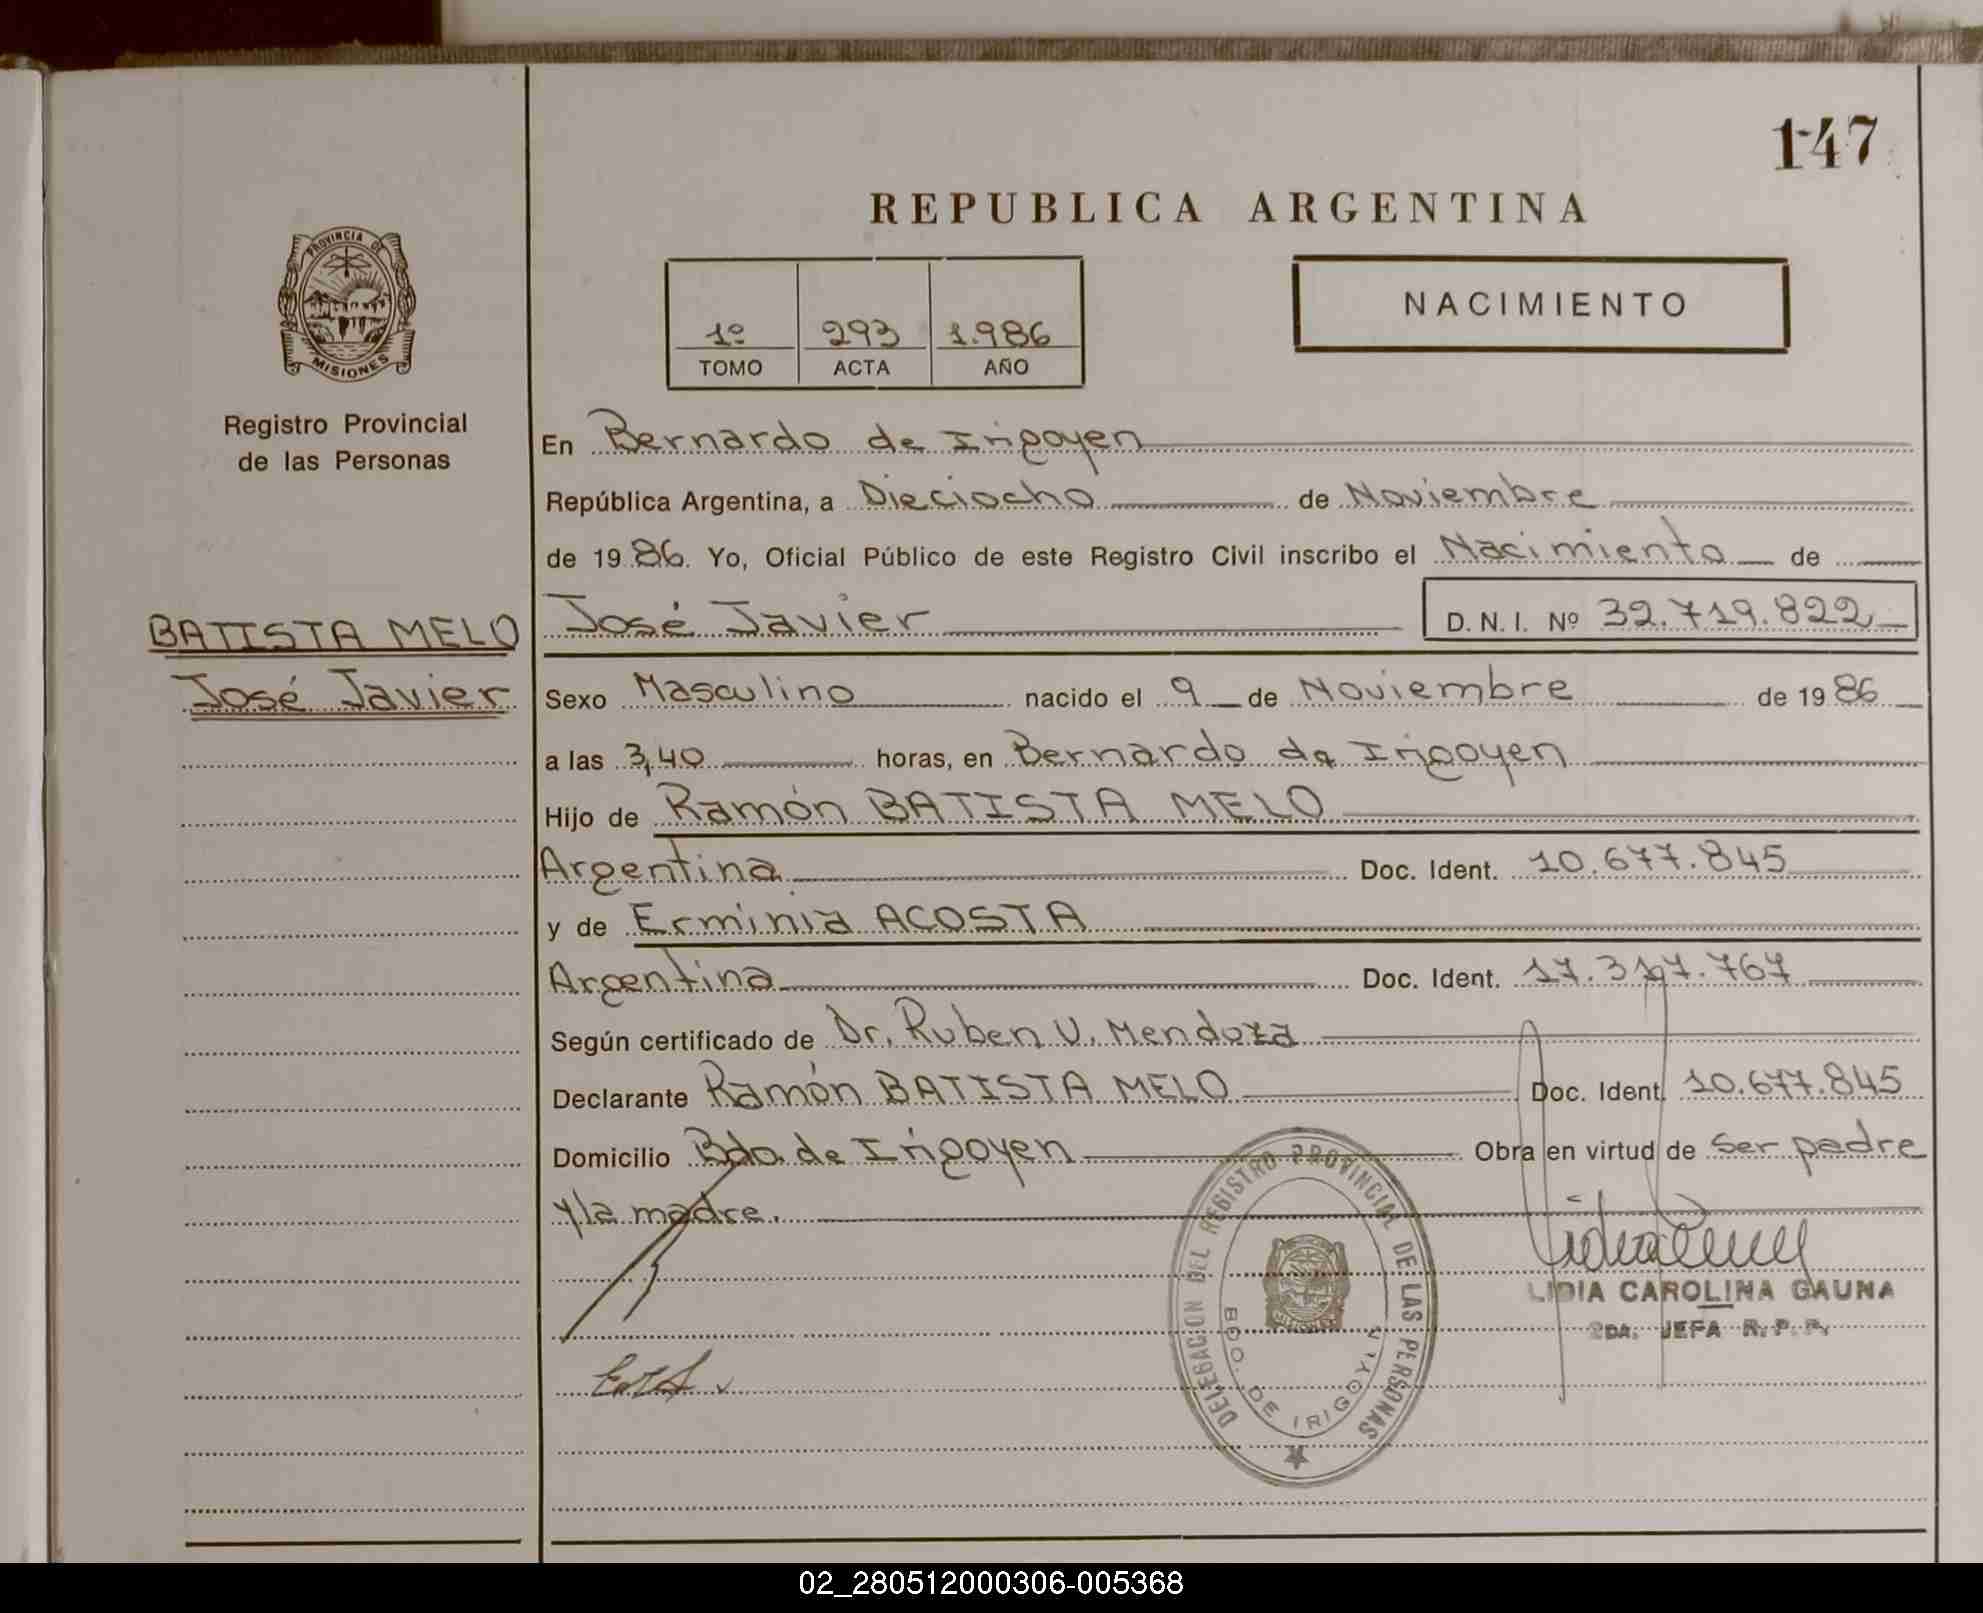 147
REPUBLICA ARGENTINA
PROVINCIA DE
MISIONES
Registro Provincial
de las Personas
1º 293 1.986
TOMO ACTA AÑO
NACIMIENTO
En Bernardo de Irigoyen
República Argentina, a Dieciocho de Noviembre
de 1986. Yo, Oficial Público de este Registro Civil inscribo el Nacimiento de
BATISTA MELO
José Javier
José Javier D.N.I. Nº 32.719.822
Sexo Masculino nacido el 9 de Noviembre de 1986
a las 3,40 horas, en Bernardo de Irigoyen
Hijo de Ramón BATISTA MELO
Argentina Doc. Ident. 10.677.845
y de Erminia ACOSTA
Argentina Doc. Ident. 17.317.767
Según certificado de Dr. Ruben V. Mendoza
Declarante Ramón BATISTA MELO Doc. Ident. 10.677.845
Domicilio Bdo. de Irigoyen Obra en virtud de ser padre
y la madre.
DELEGACION DEL REGISTRO PROVINCIAL DE LAS PERSONAS
BDO. DE IRIGOYEN
LIDIA CAROLINA GAUNA
2DA. JEFA R.P.P.
02_280512000306-005368